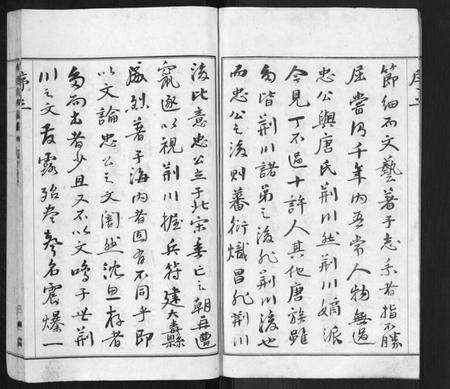 序二
節細不文藝著于志乘者指不勝
屈嘗謂千年內吾常人物無過
忠公與唐氏荊川然荊川嫡派
今見丁不過十許人其他唐族雖
多皆荊川諸弟之後非荊川後也
而忠公之後則蕃衍熾昌非荊川
後比意忠公立于北宋垂亡之朝再遭
竄逐以視荊川握兵符建大纛縣
威烈著于海內者固有不同乎即
以文論忠公之文闇然沈且存者
多而出者少且又不以文鳴于世荊
川之文發露殆盡聲名震爆一
序三